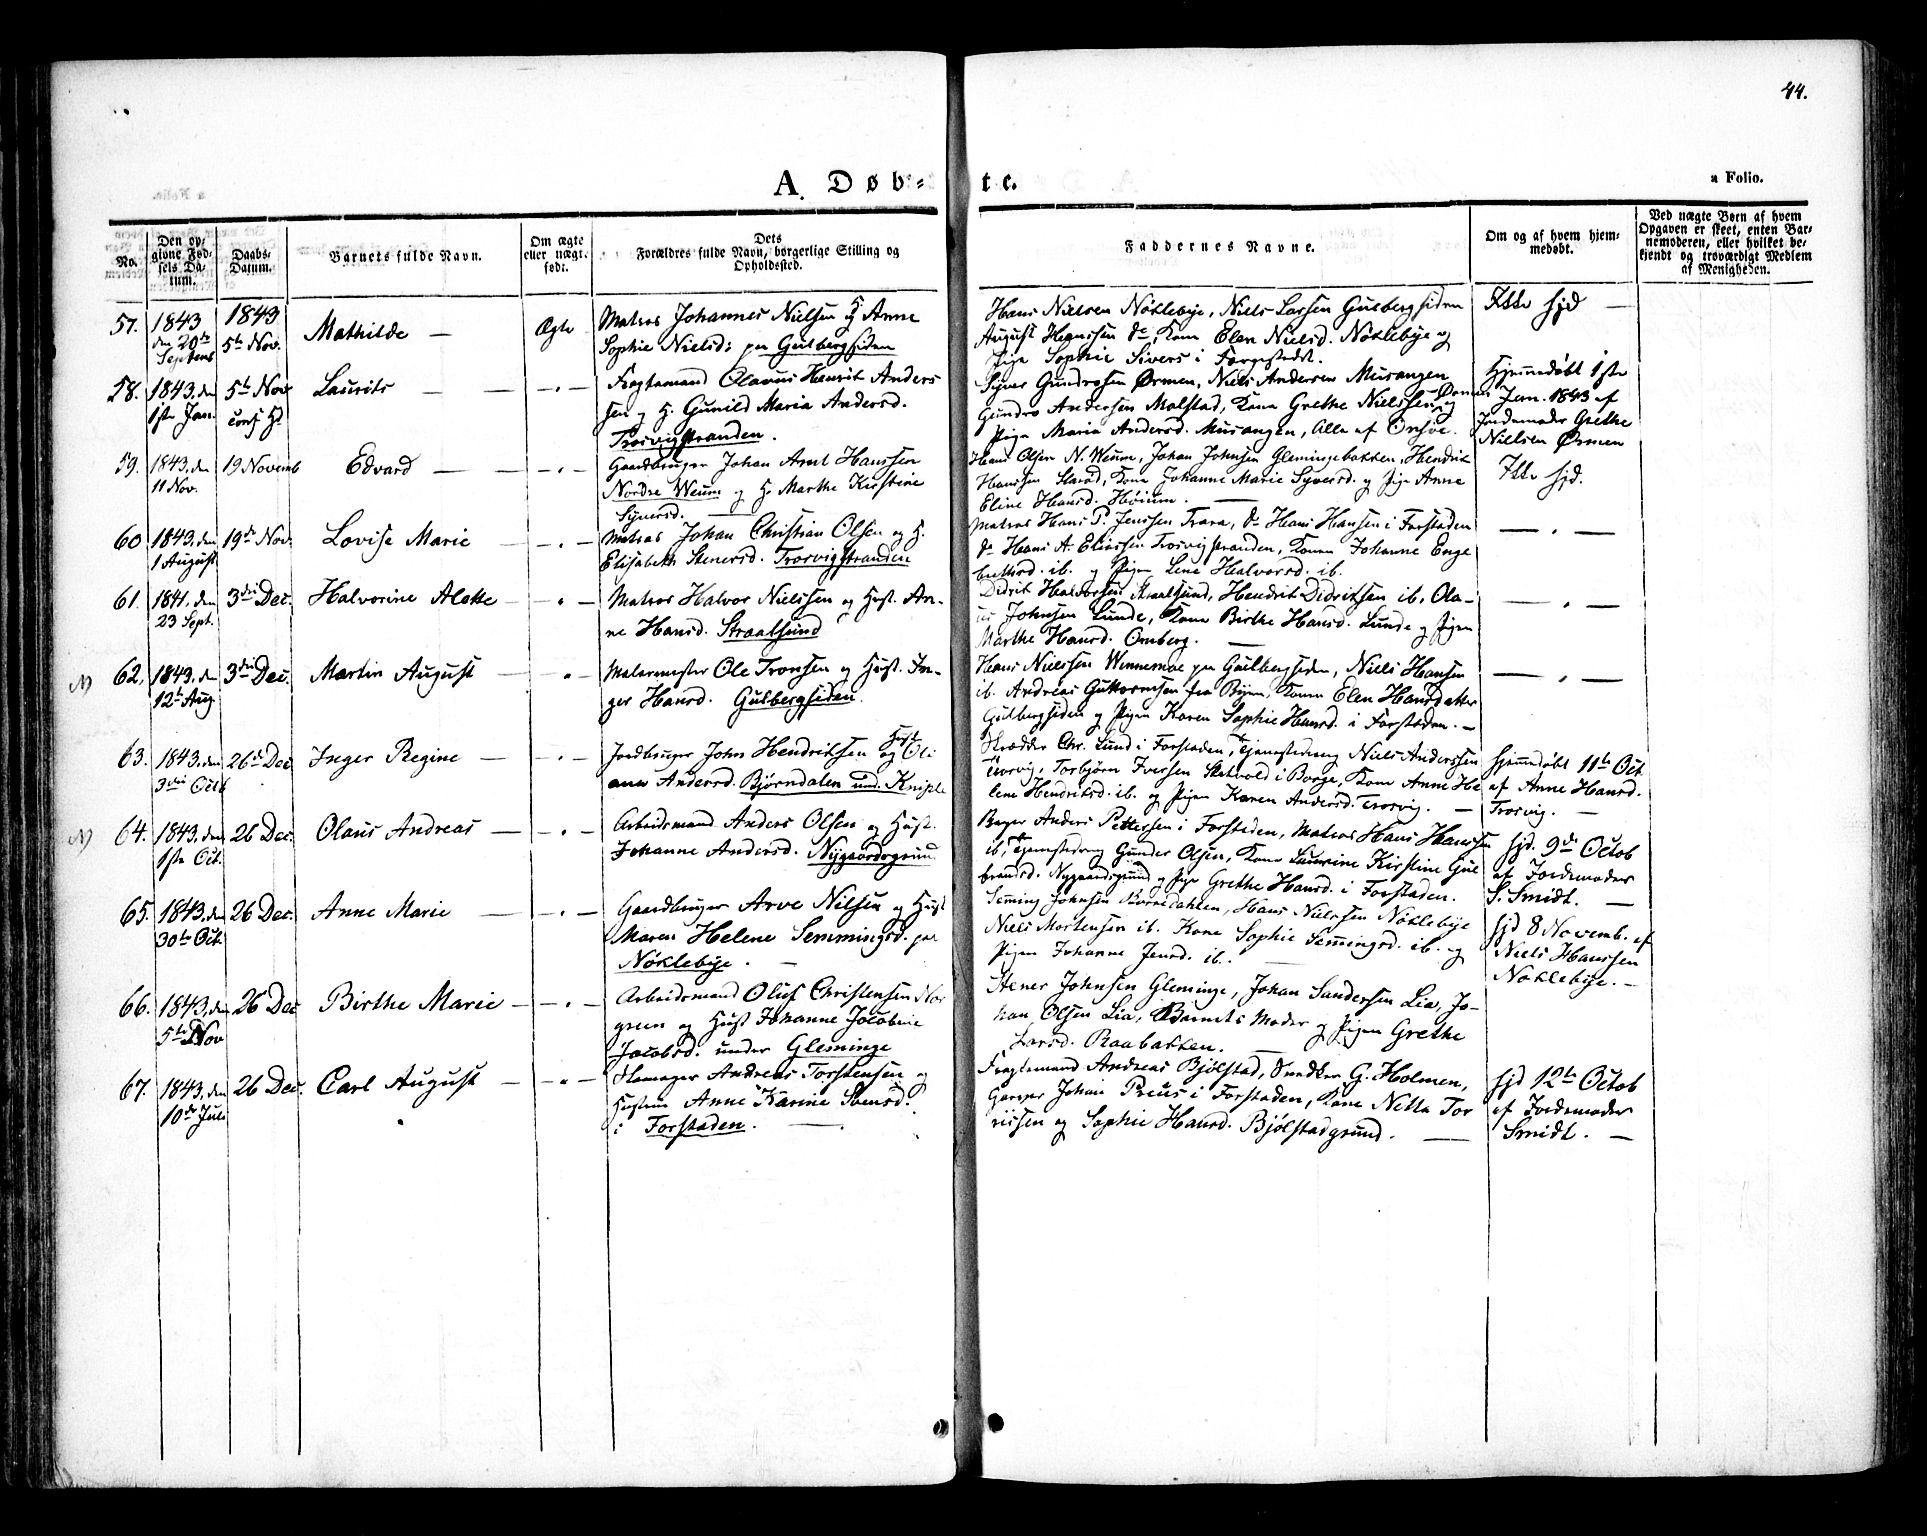 44.
A. Døb-
te.
a Folio.
No.
Den opgivne Fødsels Datum.
Daabs-Datum.
Barnets fulde Navn.
Om ægte eller uægte født.
Dets
Forældres fulde Navn, borgerlige Stilling og
Opholdssted.
Faddernes Navne.
Om og af hvem hjemmedøbt.
Ved uægte Børn af hvem
Opgaven er skeet, enten Barnemoderen, eller hvilket bekjendt og troværdigt Medlem
af Menigheden.
57. 1843 den 20de Septemb 1843 5te Nov. Mathilde — Ægte
Matros Johannes Nielsen & H. Anne
Sophie Nielsd: paa Gulbergsiden
Hans Nielsen Nøklebye, Niels Larsen Gulbergsiden
August Hanssen do, Kone Elen Nielsd. Nøklebye og
Pige Sophie Sivers i Forstædt.
Ikke hjd —
58. 1843. den 1ste Jan. 5te Nov conf H Laurits — — " —
Fragtemand Olavus Henrik Anders
sen og H. Gunild Maria Andersd.
Trosvigstranden.
Syver Gundrosen Ørmen, Niels Andersen Musangen
Gundro Andersen Malstad, Kone Grethe Nielssen Ørmen og
Pige Maria Andersd. Musangen, Alle af Onsøe.
Hjemmedøbt 1ste
Jan. 1843 af
Jordemoder Grethe
Nielsen Ørmen
59. 1843. den 11 Nov. 19 Novemb Edvard — — " —
Gaardbruger Johan Arnt Hanssen
Nordre Weum og H. Marthe Kirstine
Syversd.
Hans Olsen N. Weum, Johan Johnsen Glemingebakken, Hendrik
Hanssen Slarød, Kone Johanne Marie Syversd. og Pige Anne
Eline Hansd. Høium. —
Ikke hjd.
60 1843. den 1 August 19de Nov. Lovise Marie — — " —
Matros Johan Christian Olsen og H.
Elisabeth Stenersd. Trosvigstranden
Matros Hans P. Jenssen Trara, do Hans Hansen i Forstaden
do Hans A. Eliassen Trosvigstranden, Konen Johanne Enge
brettsd. ib. og Pigen Lene Halvorsd. ib.
— " —
61. 1841. den 23 Sept. 3die Dec. Halvorine Alette — — " —
Matros Halvor Nielssen og Hust. An-
ne Hansd. Straalsund
Didrik Halvorsen Kraalsund, Hendrik Didriksen ib, Ola-
us Johnsen Lunde, Kone Birthe Hansd. Lunde og Pigen
Marthe Hansd. Omberg. —
— " —
62. 1843. den 12te Aug 3die Dec. Martin August — — " —
Malermester Ole Tronsen og Hust. In-
ger Hansd. Gulbergsiden.
Hans Nielssen Winnemoe paa Gulbergsiden, Niels Hansen
ib. Andreas Guttormsen fra Byen, Konen Elen Hansdatter
Gulbergsiden og Pigen Karen Sophie Hansd. i Forstaden. —
— " —
63. 1843. den 3die Octb 26de Dec Inger Regine — — " —
Jordbruger John Hendriksen og Hust. Oli
ana Andersd. Bjørndalen und. Kniple
Skrædder Chr. Lund i Forstaden, Tjenestedreng Niels Anderssen
Trosvig, Torbjørn Iversen Skivold i Borge, Kone Anne He
lene Hendriksd. ib. og Pigen Karen Andersd. Trosvig. —
Hjemmedøbt 11te Oct.
af Anne Hansd.
Trosvig. —
64. 1843. den 1ste Oct. 26 Dec. Olaus Andreas — — " —
Arbeidsmand Anders Olsen og Hust.
Johanne Andersd. Nygaardsgrund
Bager Anders Pettersen i Forstaden, Matros Hans Hanssen
ib, Tjenestedreng Gunder Olsen, Kone Laurine Kirstine Gul
brandsd. Nygaardsgrund og Pige Grethe Hansd. i Forstaden.
hjd. 9de Octob
af Jordemoder
S. Smidt. —
65. 1843. den 30te Oct. 26 Dec. Anne Marie — — " —
Gaardbruger Arve Nilsen og Hust
Maren Helene Semmingsd. paa
Nøklebye. —
Semming Johnsen Bjørndahlen, Hans Nielssen Nøklebye
Niels Mortensen ib. Kone Sophie Semingsd. ib. og
Pigen Johanne Jensd. ib. —
hjd 8 Novemb. af
Niels Hanssen
Nøklebye. —
66. 1843. den 5te Nov 26 Dec Birthe Marie — — " —
Arbeidsmand Oluf Christensen Nor
green og Hust Johanne Jacobine
Jacobsd. under Gleminge
Stener Johnsen Gleminge, Johan Sanderssen Lia, Jo-
han Olsen Lia, Barnets Moder og Pigen Grethe
Larsd. Raabakken. —
67. 1843. den 10de Juli 26 Dec. Carl August — — " —
Skomager Andreas Torstensen og
Hustrue Anne Karine Svensd.
i Forstaden. —
Fragtemand Andreas Bjølstad, Snedker G. Holmen,
Garver Johan Preus i Forstaden, Kone Netta Tor
rissen og Sophie Hansd. Bjølstadgrund. —
hjd 12te Octob
af Jordemoder
Smidt. —